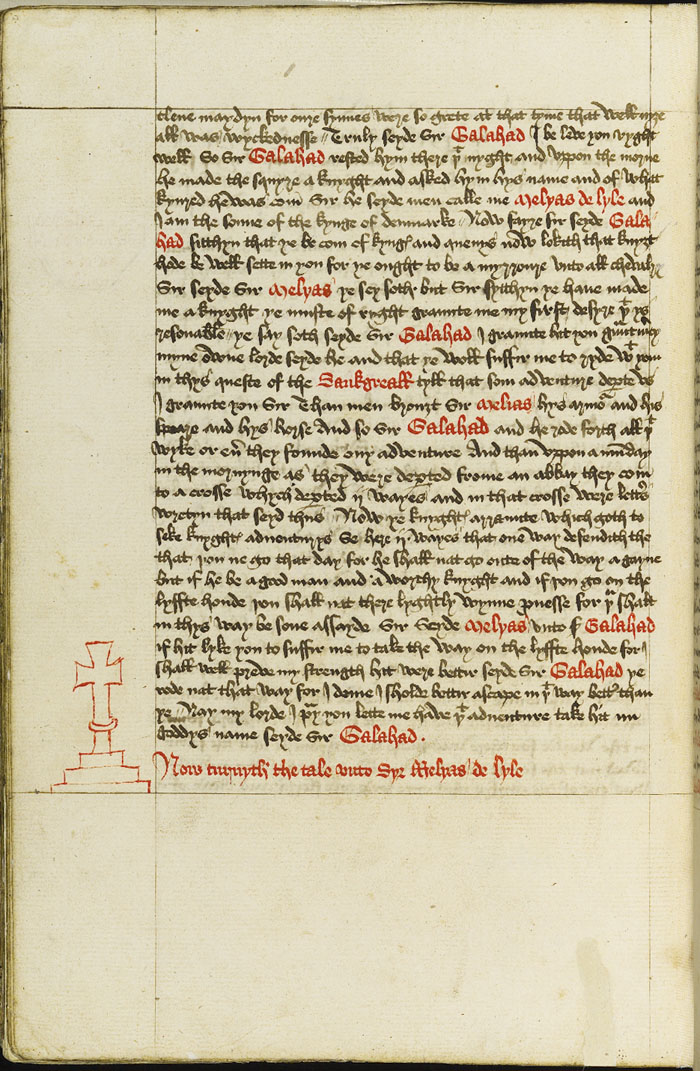 clene maydyn for oure synnes were so grete at that tyme that well nyȝe
all was wyckednesse Truly seyde Sir Galahad I be leve you ryght
well So Sir Galahad rested hym there þt nyght and uppon the morne
he made the squyre a knyght and asked hym hys name and of what
kynred he was com Sir he seyde men calle me Melyas de lyle and
I am the sonne of the kynge of denmarke Now fayre sir seyde Gala
had sitthyn that ye be com of kyngꝭ and quenys now lokith that knyȝt
hode be well sette in you for ye ought to be a myrroure unto all chevalry
Sir seyde Sir Melyas ye sey soth but Sir sytthyn ye have made
me a knyght ye muste of ryght graunte me my first desyre þt ys
resonable ye say soth seyde Sir Galahad I graunte hit you
myne owne lorde seyde he and that ye woll suffir me to ryde wt you
in thys queste of the Sankgreall tyll that som adventure depte us
I graunte you Sir Than men brouȝt Sir Melias hys armor and hys
speare and hys horse And so Sir Galahad and he rode forth all þt
wyke or eu they founde ony adventure And than uppon a munday
in the mornynge as they were depted frome an abbay they com
to a crosse whych depted ij wayes and in that crosse were letts
wretyn that seyd thus Now ye knyghtꝭ arraunte which goth to
seke knyghtꝭ adventurys Se here ij wayes that one way defendith the
that you ne go that day for he shall nat go oute of the way agayne
but if he be a good man and a worthy knyght and if you go on the
lyffte honde you shall nat there lyghtly wynne prouesse for þu shalt
in thys way be sone assayde Sir Seyde Melyas unto Sr Galahad
if hit lyke you to suffir me to take the way on the lyffte honde for I
shall well preve my strength hit were bettir seyde Sir Galahad ye
rode nat that way for I deme I sholde bettir ascape in þt way bettr than
ye Nay my lorde I pray you lette me have þt adventure take hit in
goddys name seyde Sir Galahad .
Now turnyth the tale unto Syr Melyas de lyle